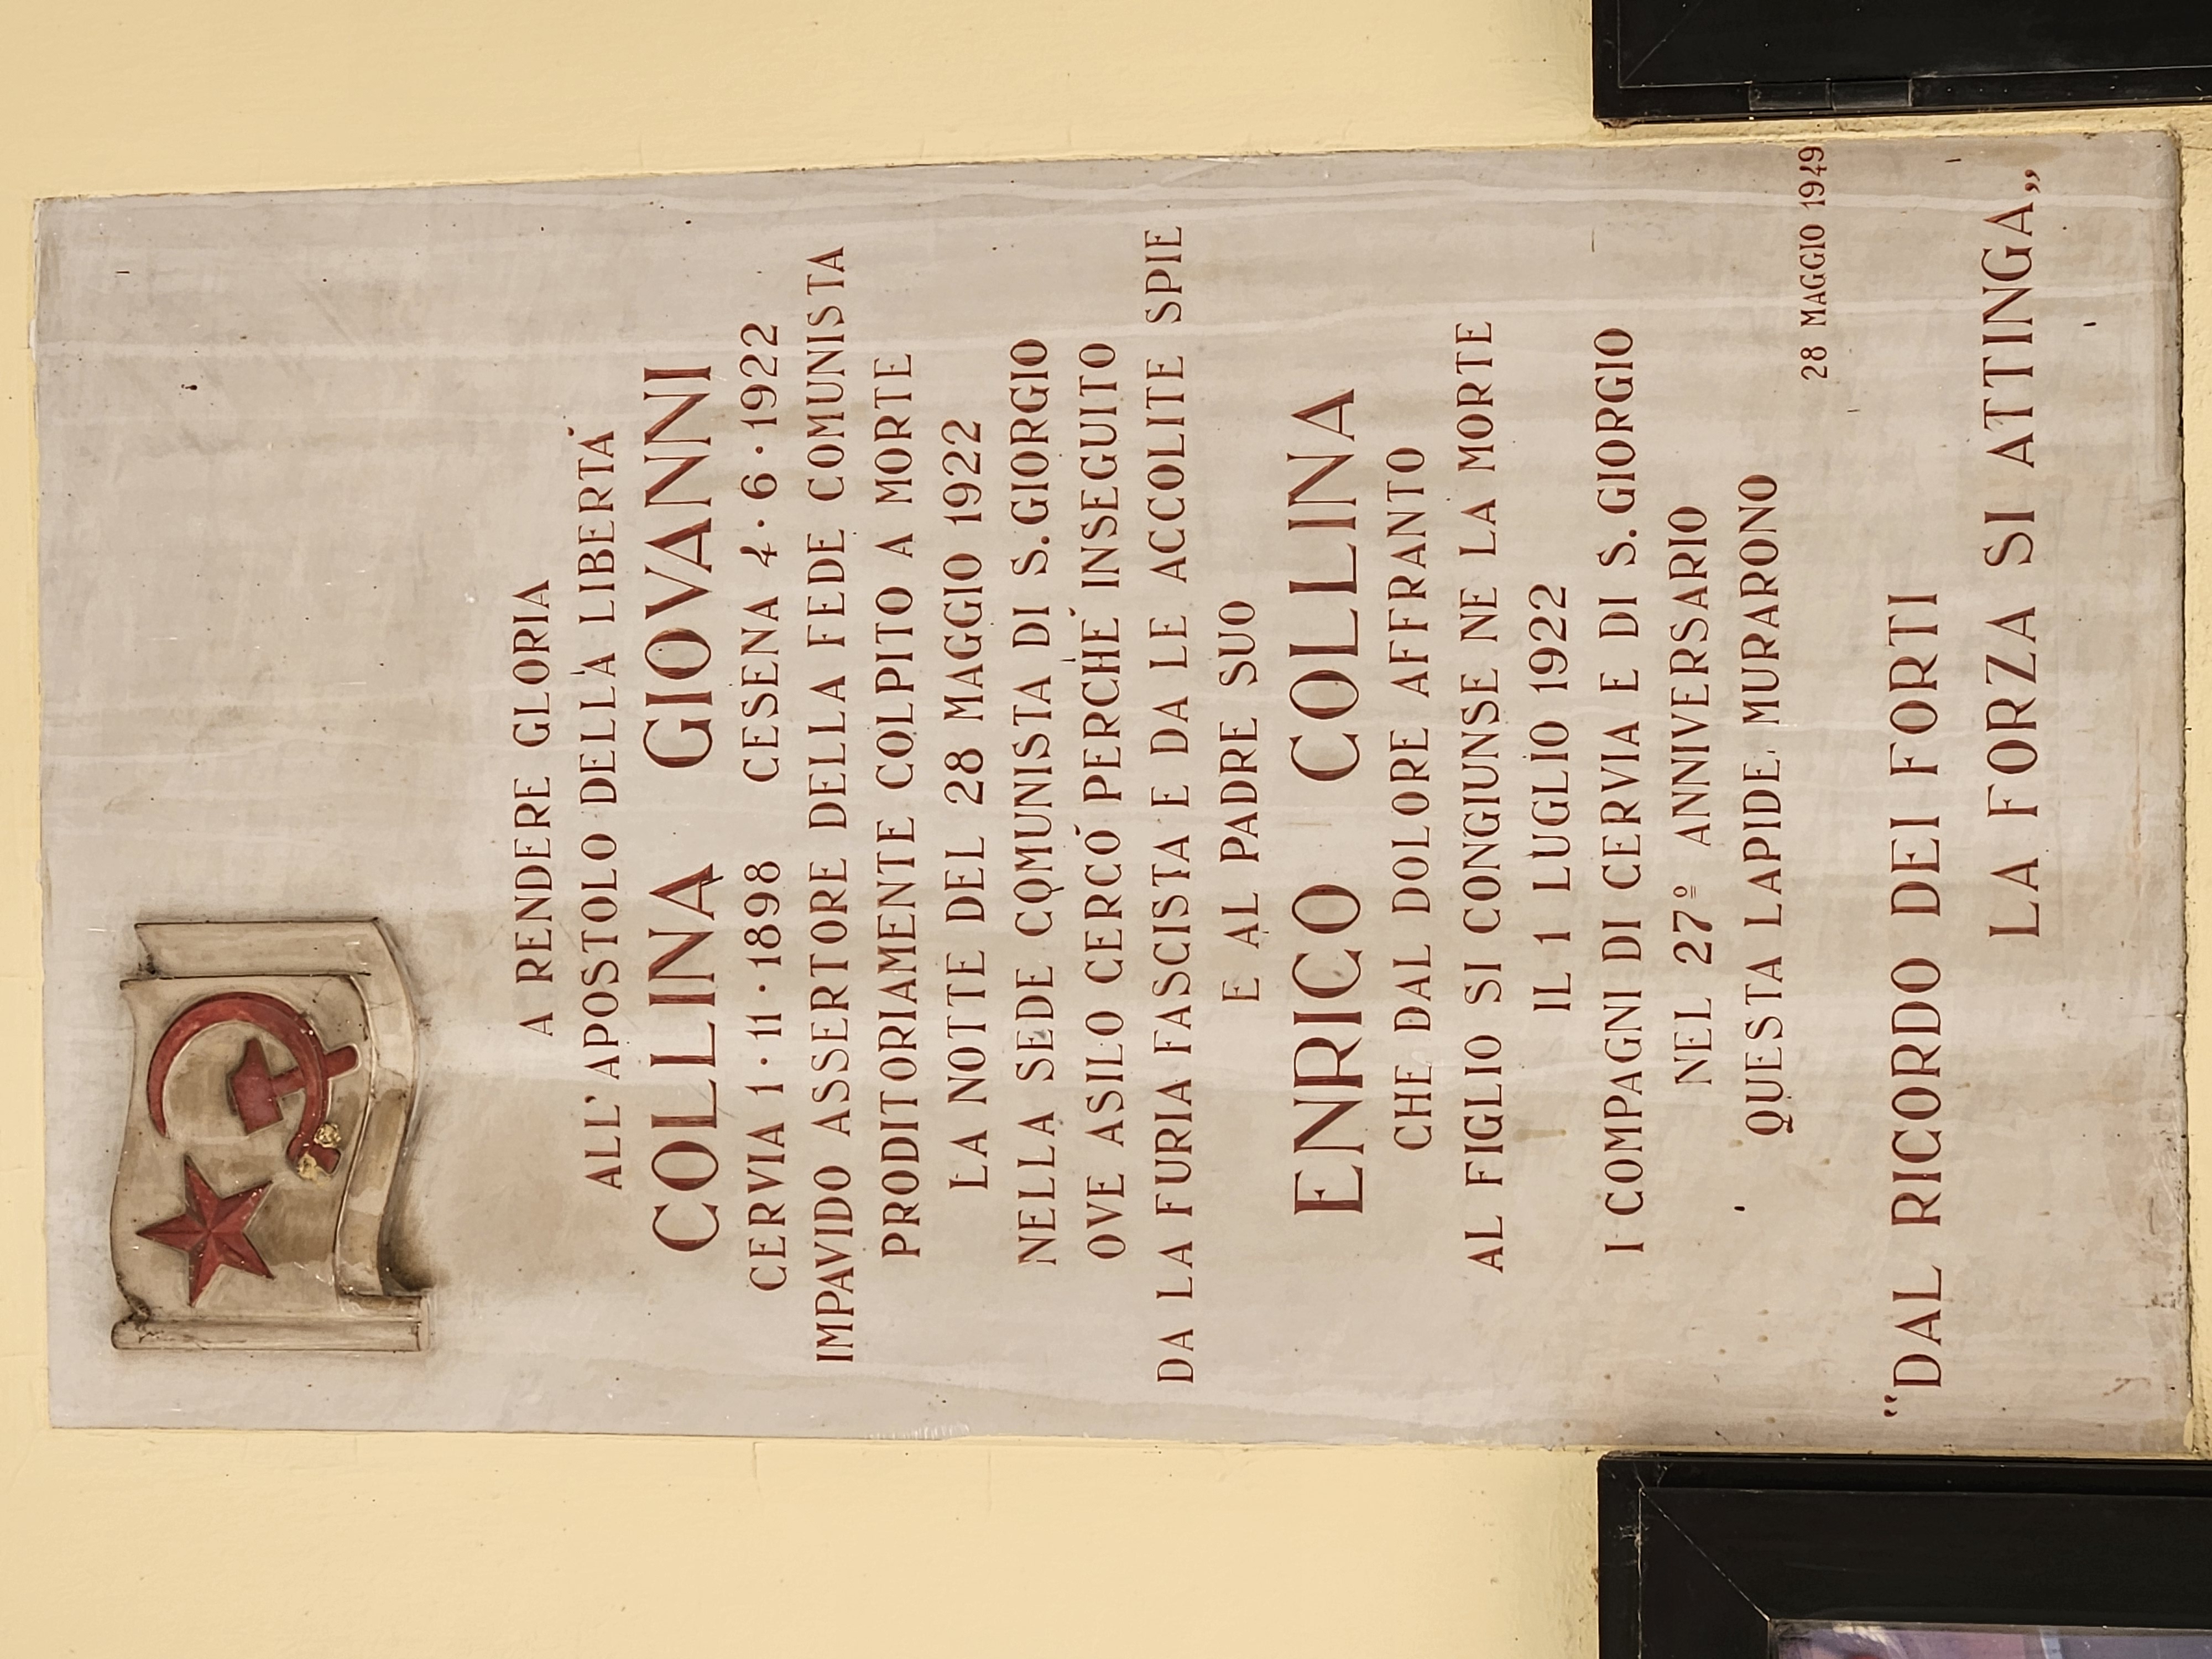 A RENDERE GLORIA
ALL'APOSTOLO DELLA LIBERTÀ
COLLINA GIOVANNI
CERVIA 1·11·1898 CESENA 4·6·1922
IMPAVIDO ASSERTORE DELLA FEDE COMUNISTA
PRODITORIAMENTE COLPITO A MORTE
LA NOTTE DEL 28 MAGGIO 1922
NELLA SEDE COMUNISTA DI S. GIORGIO
OVE ASILO CERCÒ PERCHÈ INSEGUITO
DA LA FURIA FASCISTA E DA LE ACCOLITE SPIE
E AL PADRE SUO
ENRICO COLLINA
CHE DAL DOLORE AFFRANTO
AL FIGLIO SI CONGIUNSE NE LA MORTE
IL 1 LUGLIO 1922
I COMPAGNI DI CERVIA E DI S. GIORGIO
NEL 27º ANNIVERSARIO
QUESTA LAPIDE MURARONO
28 MAGGIO 1949
"DAL RICORDO DEI FORTI
LA FORZA SI ATTINGA„